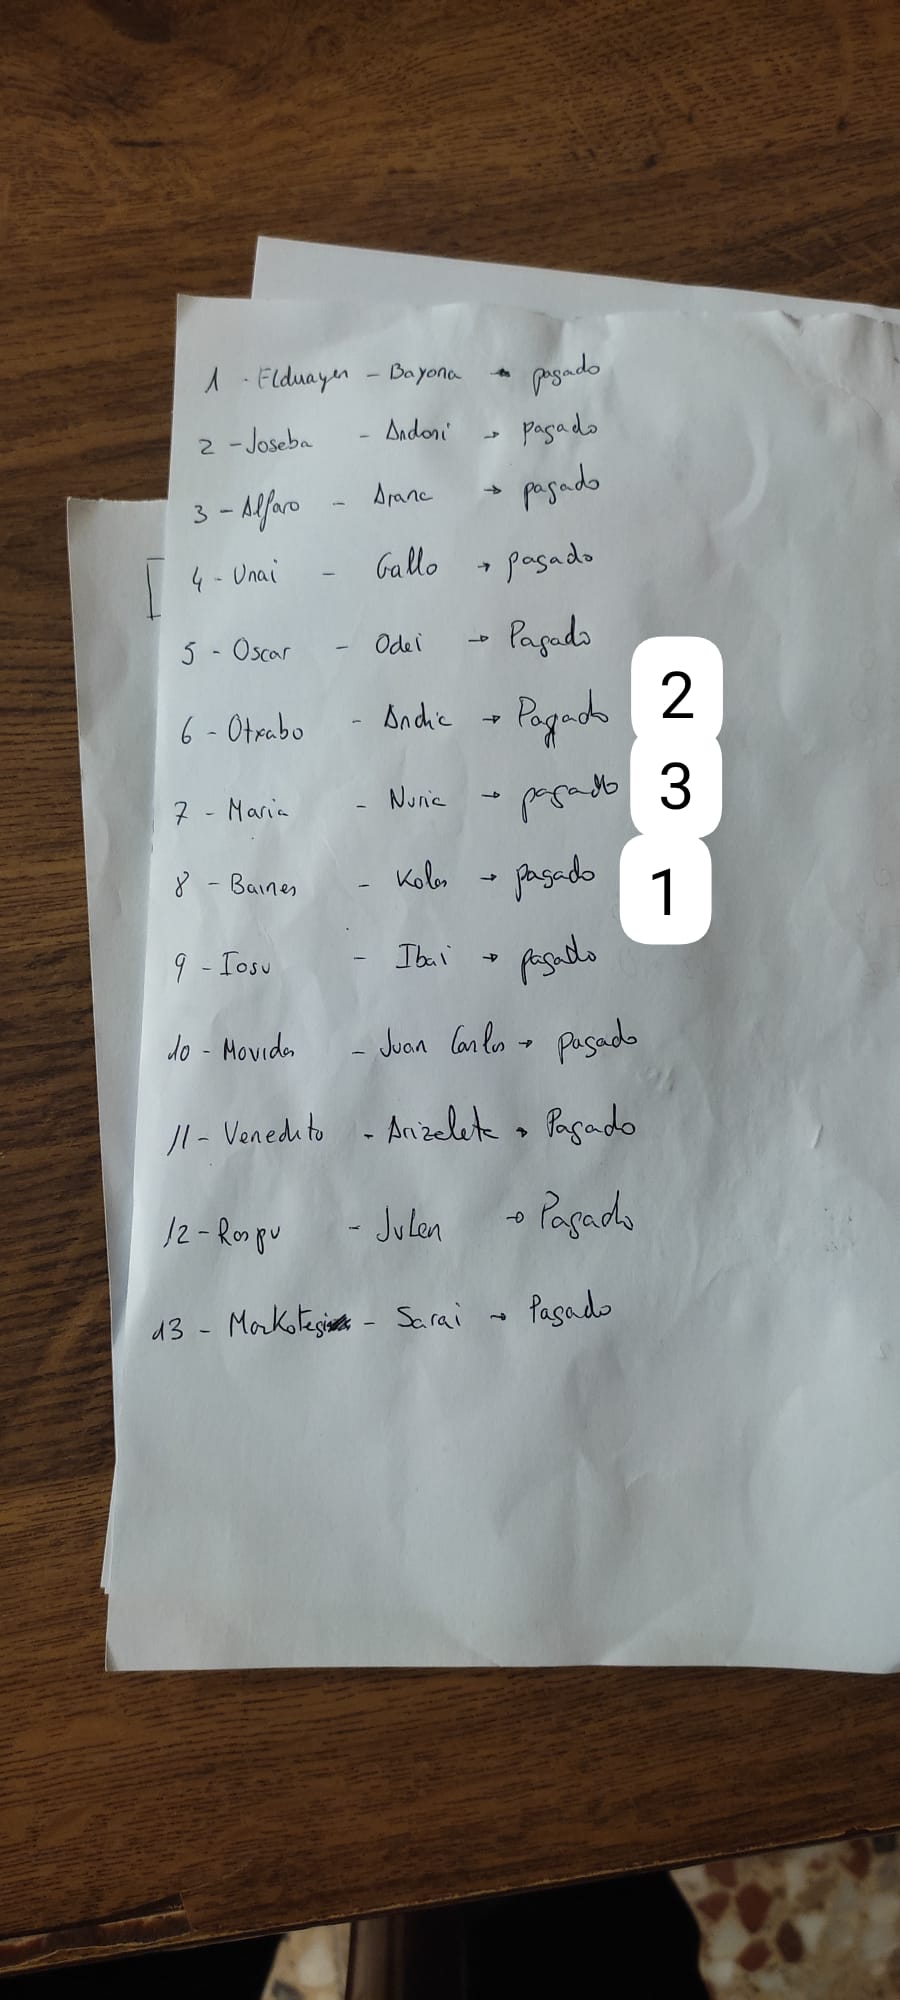 1 - Elduayen - Bayona → pagado
2 - Joseba - Andoni → pagado
3 - Alfaro - Aranc → pagado
4 - Unai - Gallo → pagado
5 - Oscar - Odei → Pagado
6 - Otxabo - Andic → Pagado 2
7 - Maria - Nuria → pagado 3
8 - Baines - Koles → pagado 1
9 - Iosu - Ibai → pagado
10 - Movidas - Juan Carlos → pagado
11 - Venedito - Arizeleta → Pagado
12 - Raspu - Julen → Pagado
13 - Markotegi - Sarai → Pagado